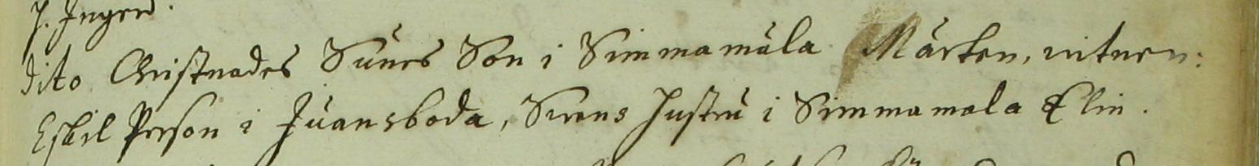 P. Inger.
dito Christnades Sunes Son i Simmamåla Märten, vitnen:
Eskil Person i Juansboda, Svens hustru i Simmamåla Elin.